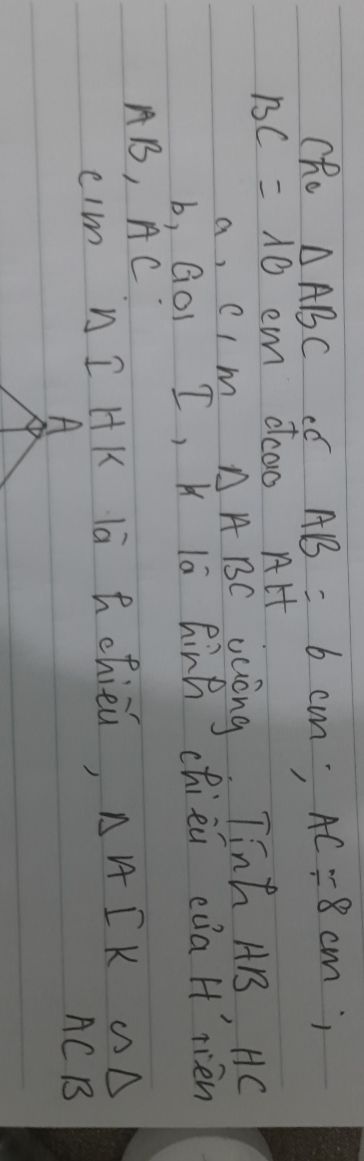 Cho ΔABC có AB = 6 cm, AC = 8 cm,
BC = 10 cm đcao AH
a, c/m ΔABC vuông. Tính HB, HC
b, Gọi I, K là hình chiếu của H trên
AB, AC
c/m AIHK là h chiếu, ΔAIK ∽ Δ
ACB
A